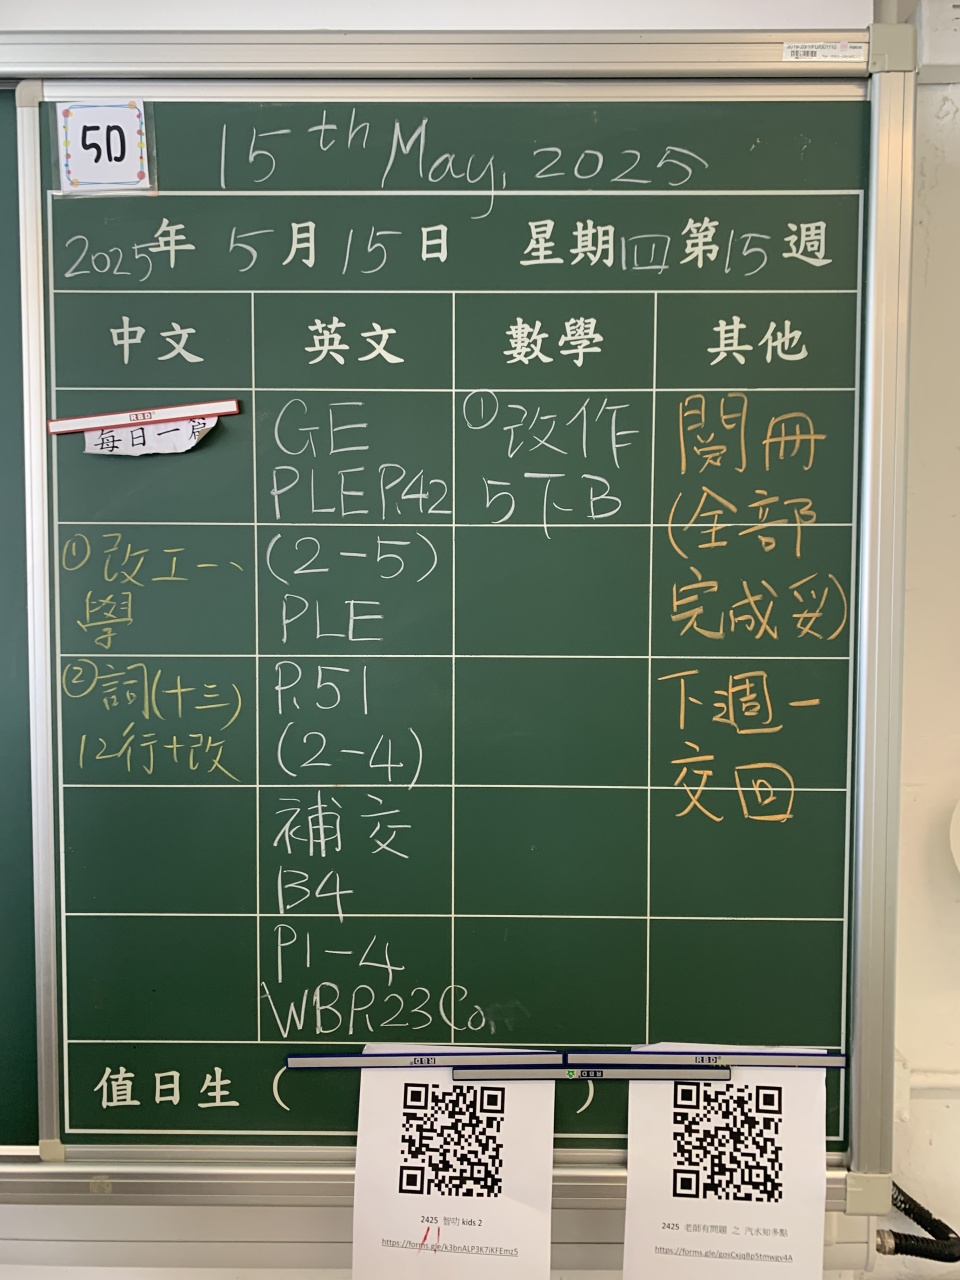 5D
15th May, 2025
2025年 5月15日 星期四 第15週
中文
英文
數學
其他
RBD
每日一篇
①改工一、
學
②詞(十三)
12行+改
GE
PLE P.42
(2-5)
PLE
P.51
(2-4)
補交
B4
P1-4
WB P.23 Co
①改作
5下B
閱冊
(全部
完成妥)
下週一
交回
值日生 ( )
RBD
RBD
RBD
2425 智叻 kids 2
https://forms.gle/k3bnALP3K7iKFEmz5
2425 老師有問題 之 汽水知多點
https://forms.gle/gosCxjqBp5tmwgv4A